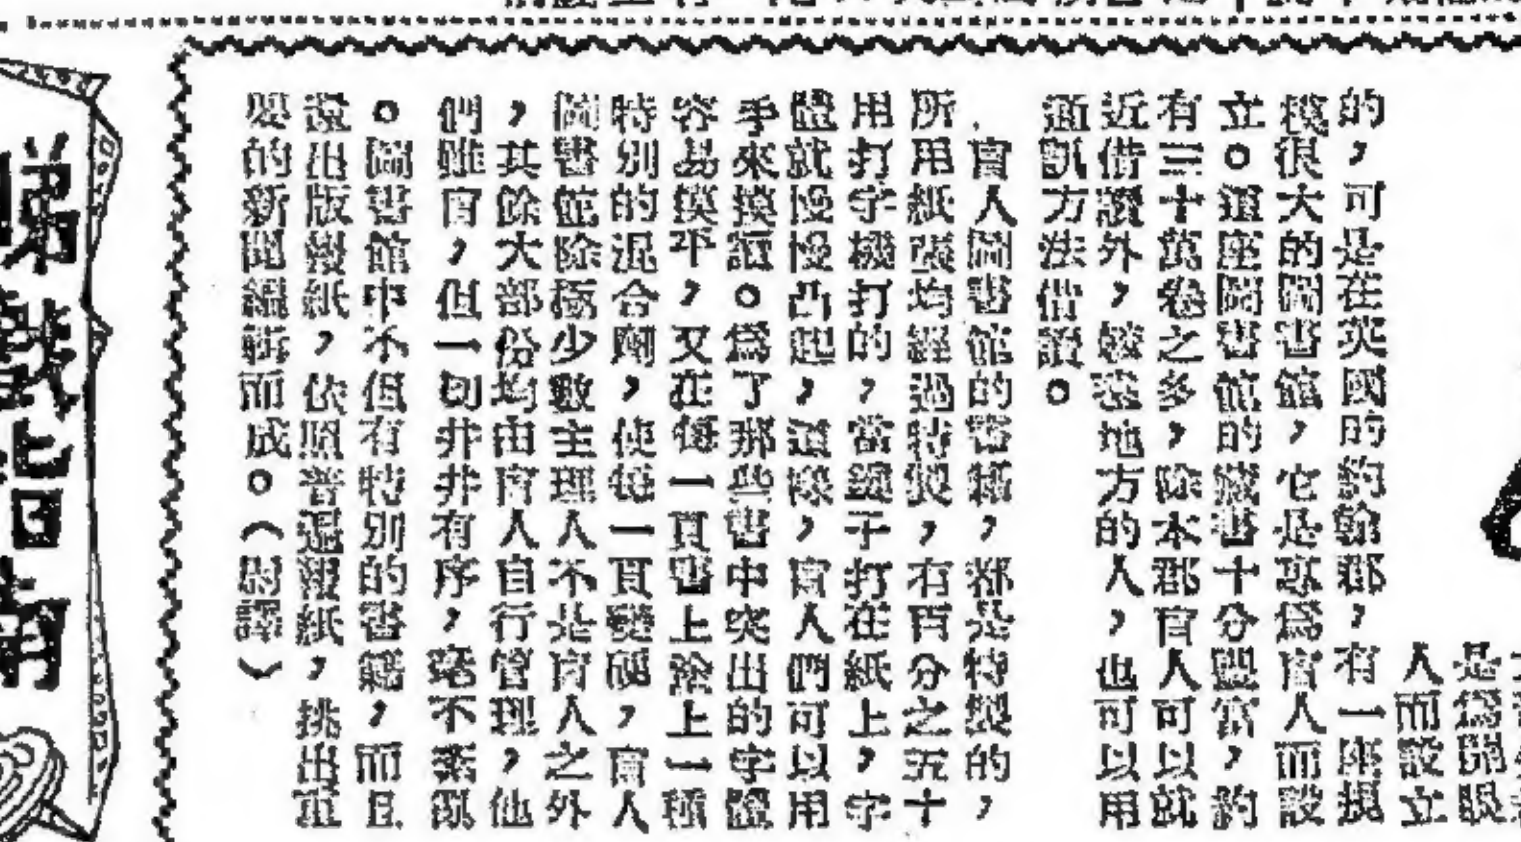 是為開眼
人而設立
的，可是在英國的約翰郡，有一座規
模很大的圖書館，它是專為盲人而設
立。這座圖書館的藏書十分豐富，約
有三十萬卷之多，除本郡盲人可以就
近借讀外，其他地方的人，也可以用
通訊方法借讀。
盲人圖書館的書籍，都是特製的，
所用紙張均經過特製，有百分之五十
用打字機打的，當鎚子打在紙上，字
體就慢慢凸起，這樣，盲人們可以用
手來摸讀。為了那些書中突出的字體
容易摸平，又在每一頁書上塗上一種
特別的混合劑，使每一頁變硬，盲人
圖書館除極少數主理人不是盲人之外
，其餘大部份均由盲人自行管理，他
們雖盲，但一切井井有序，毫不紊亂
。圖書館中不但有特別的書籍，而且
還出版報紙，依照普通報紙，挑出重
要的新聞編輯而成。（尉譯）